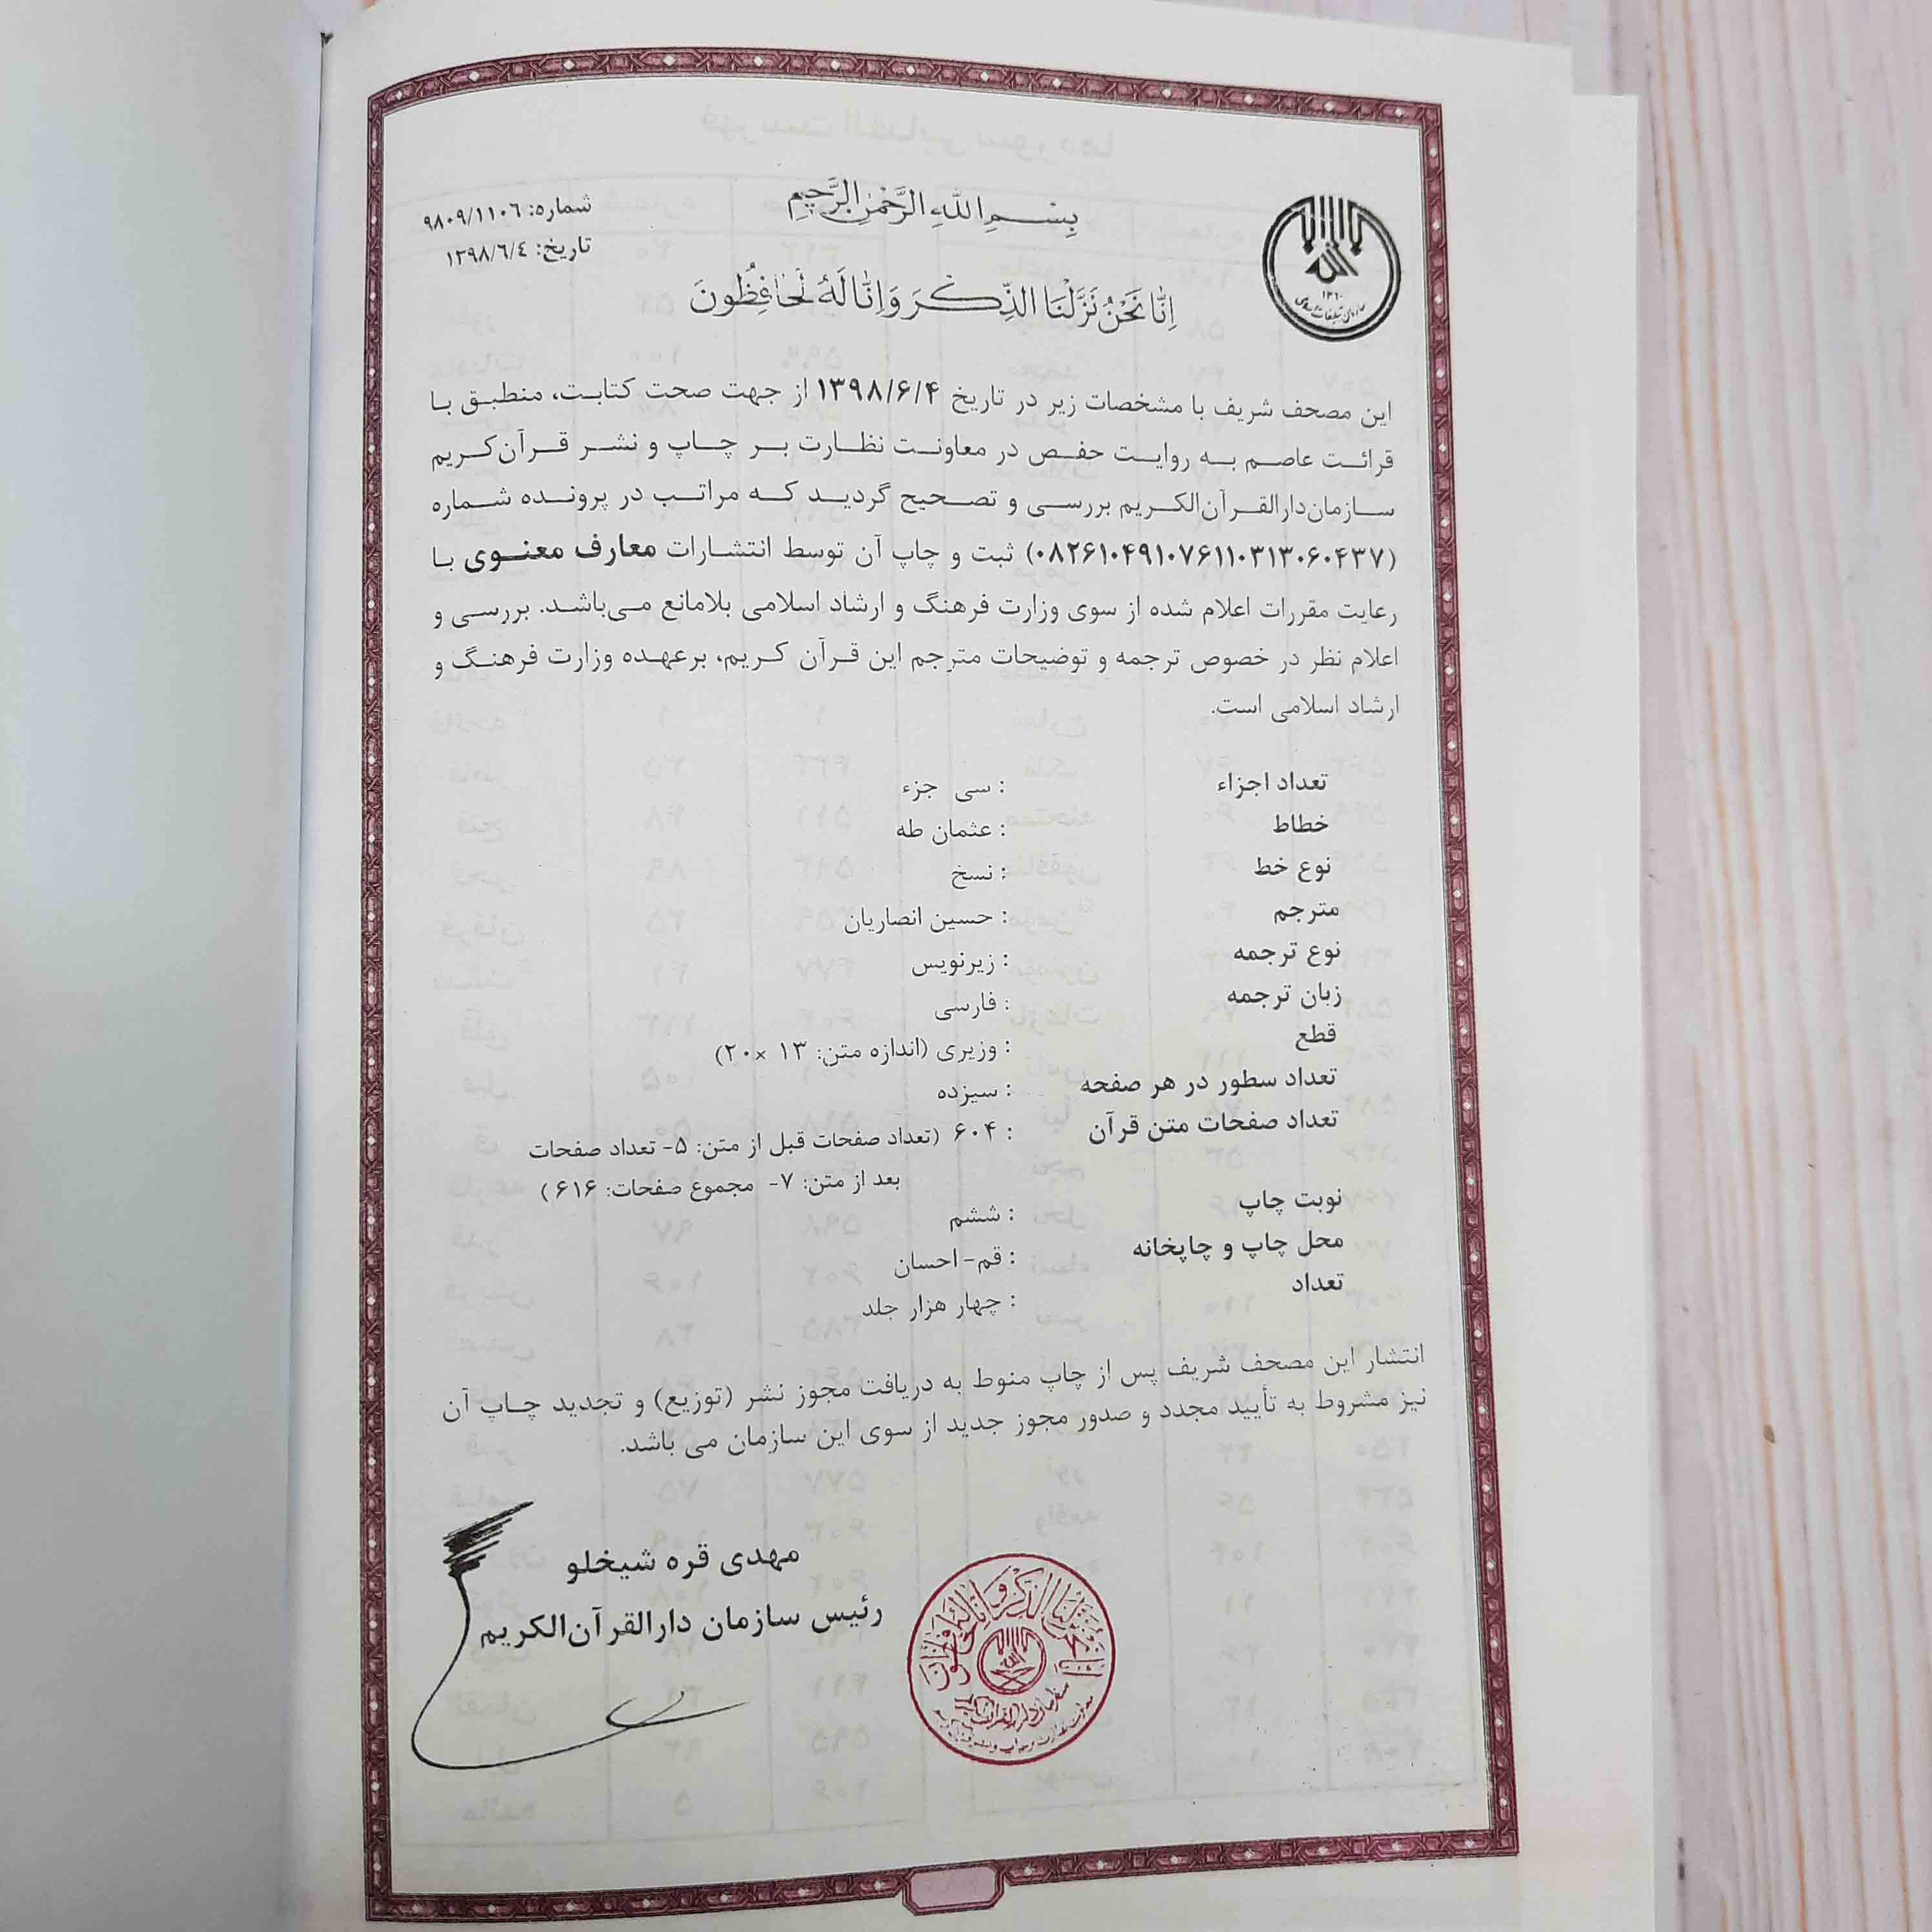 بِسْمِ اللهِ الرَّحْمٰنِ الرَّحِيمِ
شماره: ۹۸۰۹/۱۱۰۶
تاریخ: ۱۳۹۸/۶/٤
۱۳۶۰
سازمان تبلیغات اسلامی
اِنّا نَحْنُ نَزَّلْنَا الذِّكْرَ وَ اِنّا لَهُ لَحافِظُونَ
این مصحف شریف با مشخصات زیر در تاریخ ۱۳۹۸/۶/۴ از جهت صحت کتابت، منطبق با
قرائت عاصم به روایت حفص در معاونت نظارت بر چاپ و نشر قرآن‌کریم
سازمان‌دارالقرآن‌الکریم بررسی و تصحیح گردید که مراتب در پرونده شماره
(۰۸۲۶۱۰۴۹۱۰۷۶۱۱۰۳۱۳۰۶۰۴۳۷) ثبت و چاپ آن توسط انتشارات معارف معنوی با
رعایت مقررات اعلام شده از سوی وزارت فرهنگ و ارشاد اسلامی بلامانع می‌باشد. بررسی و
اعلام نظر در خصوص ترجمه و توضیحات مترجم این قرآن کریم، برعهده وزارت فرهنگ و
ارشاد اسلامی است.
تعداد اجزاء : سی جزء
خطاط : عثمان طه
نوع خط : نسخ
مترجم : حسین انصاریان
نوع ترجمه : زیرنویس
زبان ترجمه : فارسی
قطع : وزیری (اندازه متن: ۱۳ ×۲۰)
تعداد سطور در هر صفحه : سیزده
تعداد صفحات متن قرآن : ۶۰۴ (تعداد صفحات قبل از متن: ۵- تعداد صفحات
بعد از متن: ۷- مجموع صفحات: ۶۱۶)
نوبت چاپ : ششم
محل چاپ و چاپخانه : قم- احسان
تعداد : چهار هزار جلد
انتشار این مصحف شریف پس از چاپ منوط به دریافت مجوز نشر (توزیع) و تجدید چاپ آن
نیز مشروط به تأیید مجدد و صدور مجوز جدید از سوی این سازمان می باشد.
مهدی قره شیخلو
رئیس سازمان دارالقرآن‌الکریم